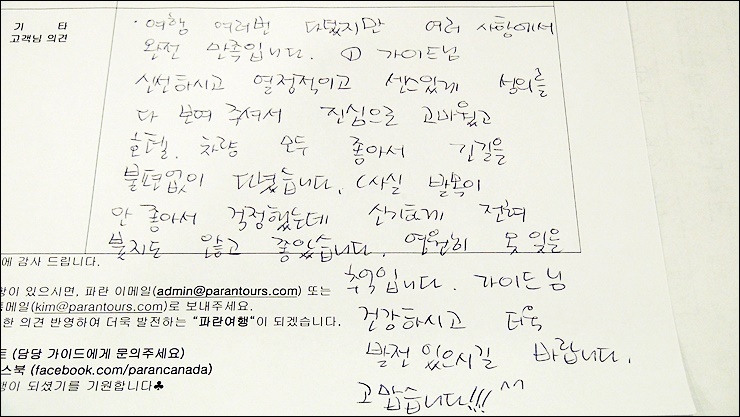 기 타
고객님 의견
· 여행 여러번 다녔지만 여러 사항에서
완전 만족입니다. ① 가이드님
신선하시고 열정적이고 센스있게 성의를
다 보여 주셔서 진심으로 고마웠고
호텔, 차량 모두 좋아서 긴길을
불편없이 다녔습니다. (사실 발목이
안 좋아서 걱정했는데 신기하게 전혀
붓지도 않고 좋았습니다. 영원히 못 잊을
추억입니다. 가이드님
건강하시고 더욱
발전 있으시길 바랍니다.
고맙습니다!!! ^^
에 감사 드립니다.
항이 있으시면, 파란 이메일(admin@parantours.com) 또는
메일(kim@parantours.com)로 보내주세요.
한 의견 반영하여 더욱 발전하는 "파란여행"이 되겠습니다.
트 (담당 가이드에게 문의주세요)
스북 (facebook.com/parancanada)
행이 되셨기를 기원합니다♣